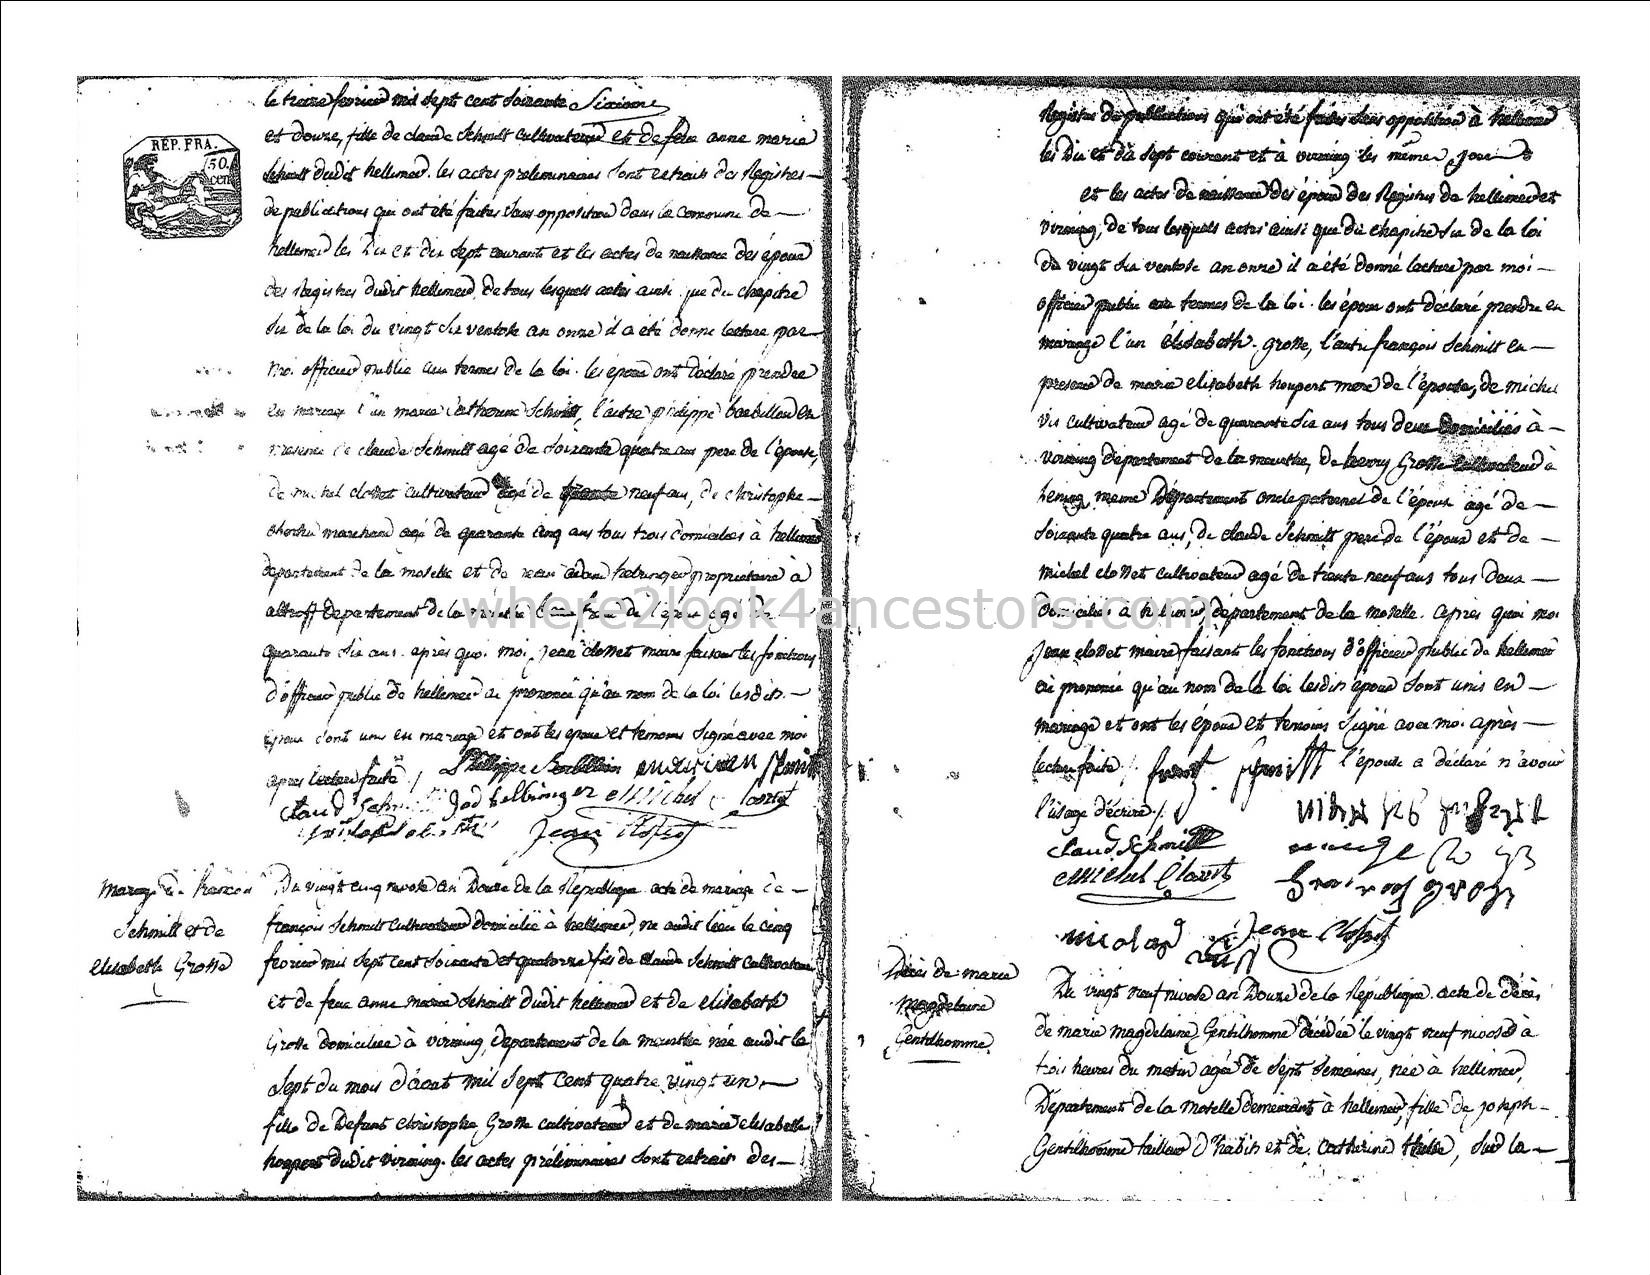 le treize fevrier mil sept cent soixante Sixieme
REP. FRA.
50. cen
et douze, fille de claude Schmitt cultivateur et de feue anne marie
Schmitt dudit hellimer. les actes preleminaires sont extraits des Registres
de publications qui ont été faites sans opposition dans la commune de
hellimer les Dix et dix sept courant et les actes de naissance des époux
des Registres dudit hellimer, de tous lesquels actes ainsi que du chapitre
six de la loi du vingt six ventose an onze il a été donné lecture par
moi officier public aux termes de la loi. les époux ont declaré prendre
en mariage l'un marie Catherine Schmitt, l'autre philippe barbillon en
presence de claude Schmitt agé de soixante quatre ans pere de l'épouse,
de michel clonet cultivateur agé de neuf ans, de christophe
marchand agé de quarante cinq ans tous trois domiciliés à hellimer
departement de la moselle et de adam helringer propriétaire à
altroff departement de la de l'epoux agé de
quarante six ans. après quoi moi jean clonet maire faisant les fonctions
d'officier public de hellimer ai prononcé qu'au nom de la loi lesdits
époux sont unis en mariage et ont les epoux et temoins signé avec moi
après lecture faite ./ Philippe Barbillon
claud Schmitt helbringer Michel
Jean
Mariage de francois
Schmitt et de
elisabeth Grosse
Du vingt cinq nivose an Douze de la Republique acte de mariage de
françois Schmitt cultivateur domicilié à hellimer, né audit lieu le cinq
fevrier mil sept cent soixante et quatorze fils de claude Schmitt cultivateur
et de feue anne marie Schmitt dudit hellimer et de elisabeth
Grosse domiciliée à virming, departement de la meurthe née audit le
sept du mois d'aout mil sept cent quatre vingt un
fille de defunt christophe Grosse cultivateur et de marie elisabethe
houpert dudit virming. les actes préliminaires sont extraits des
Registres de publications qui ont été faites sans opposition à hellimer
les Dix et dix sept courant et à virming les même jour
et les actes de naissance des époux des Registres de hellimer et
virming, de tous lesquels actes ainsi que du chapitre six de la loi
du vingt six ventose an onze il a été donné lecture par moi
officier public aux termes de la loi. les époux ont declaré prendre en
mariage l'un élisabeth grosse, l'autre françois Schmitt en
presence de marie elisabeth houpert mere de l'épouse, de michel
vis cultivateur agé de quarante six ans tous deux domiciliés à
virming departement de la meurthe, de henry Grosse cultivateur à
hening meme Département oncle paternel de l'époux agé de
soixante quatre ans, de claude Schmitt pere de l'époux et de
michel clonet cultivateur agé de trente neuf ans tous deux
domiciliés à hellimer, departement de la moselle. après quoi moi
jean clonet maire faisant les fonctions d'officier public de hellimer
ai prononcé qu'au nom de la loi lesdits époux sont unis en
mariage et ont les époux et temoins signé avec moi après
lecture faite ./ l'épouse a déclaré n'avoir
l'usage d'écrire ./
claud Schmitt
Michel
nicolas Jean
Décès de marie
Magdelaine
Gentilhomme
Du vingt neuf nivose an Douze de la République. acte de décès
de marie magdelaine Gentilhomme décédée le vingt neuf nivose à
trois heures du matin agée de sept semaines, née à hellimer,
Departement de la Moselle demeurant à hellimer, fille de joseph
Gentilhomme tailleur d'habits et de Catherine , sur la
where2look4ancestors.com